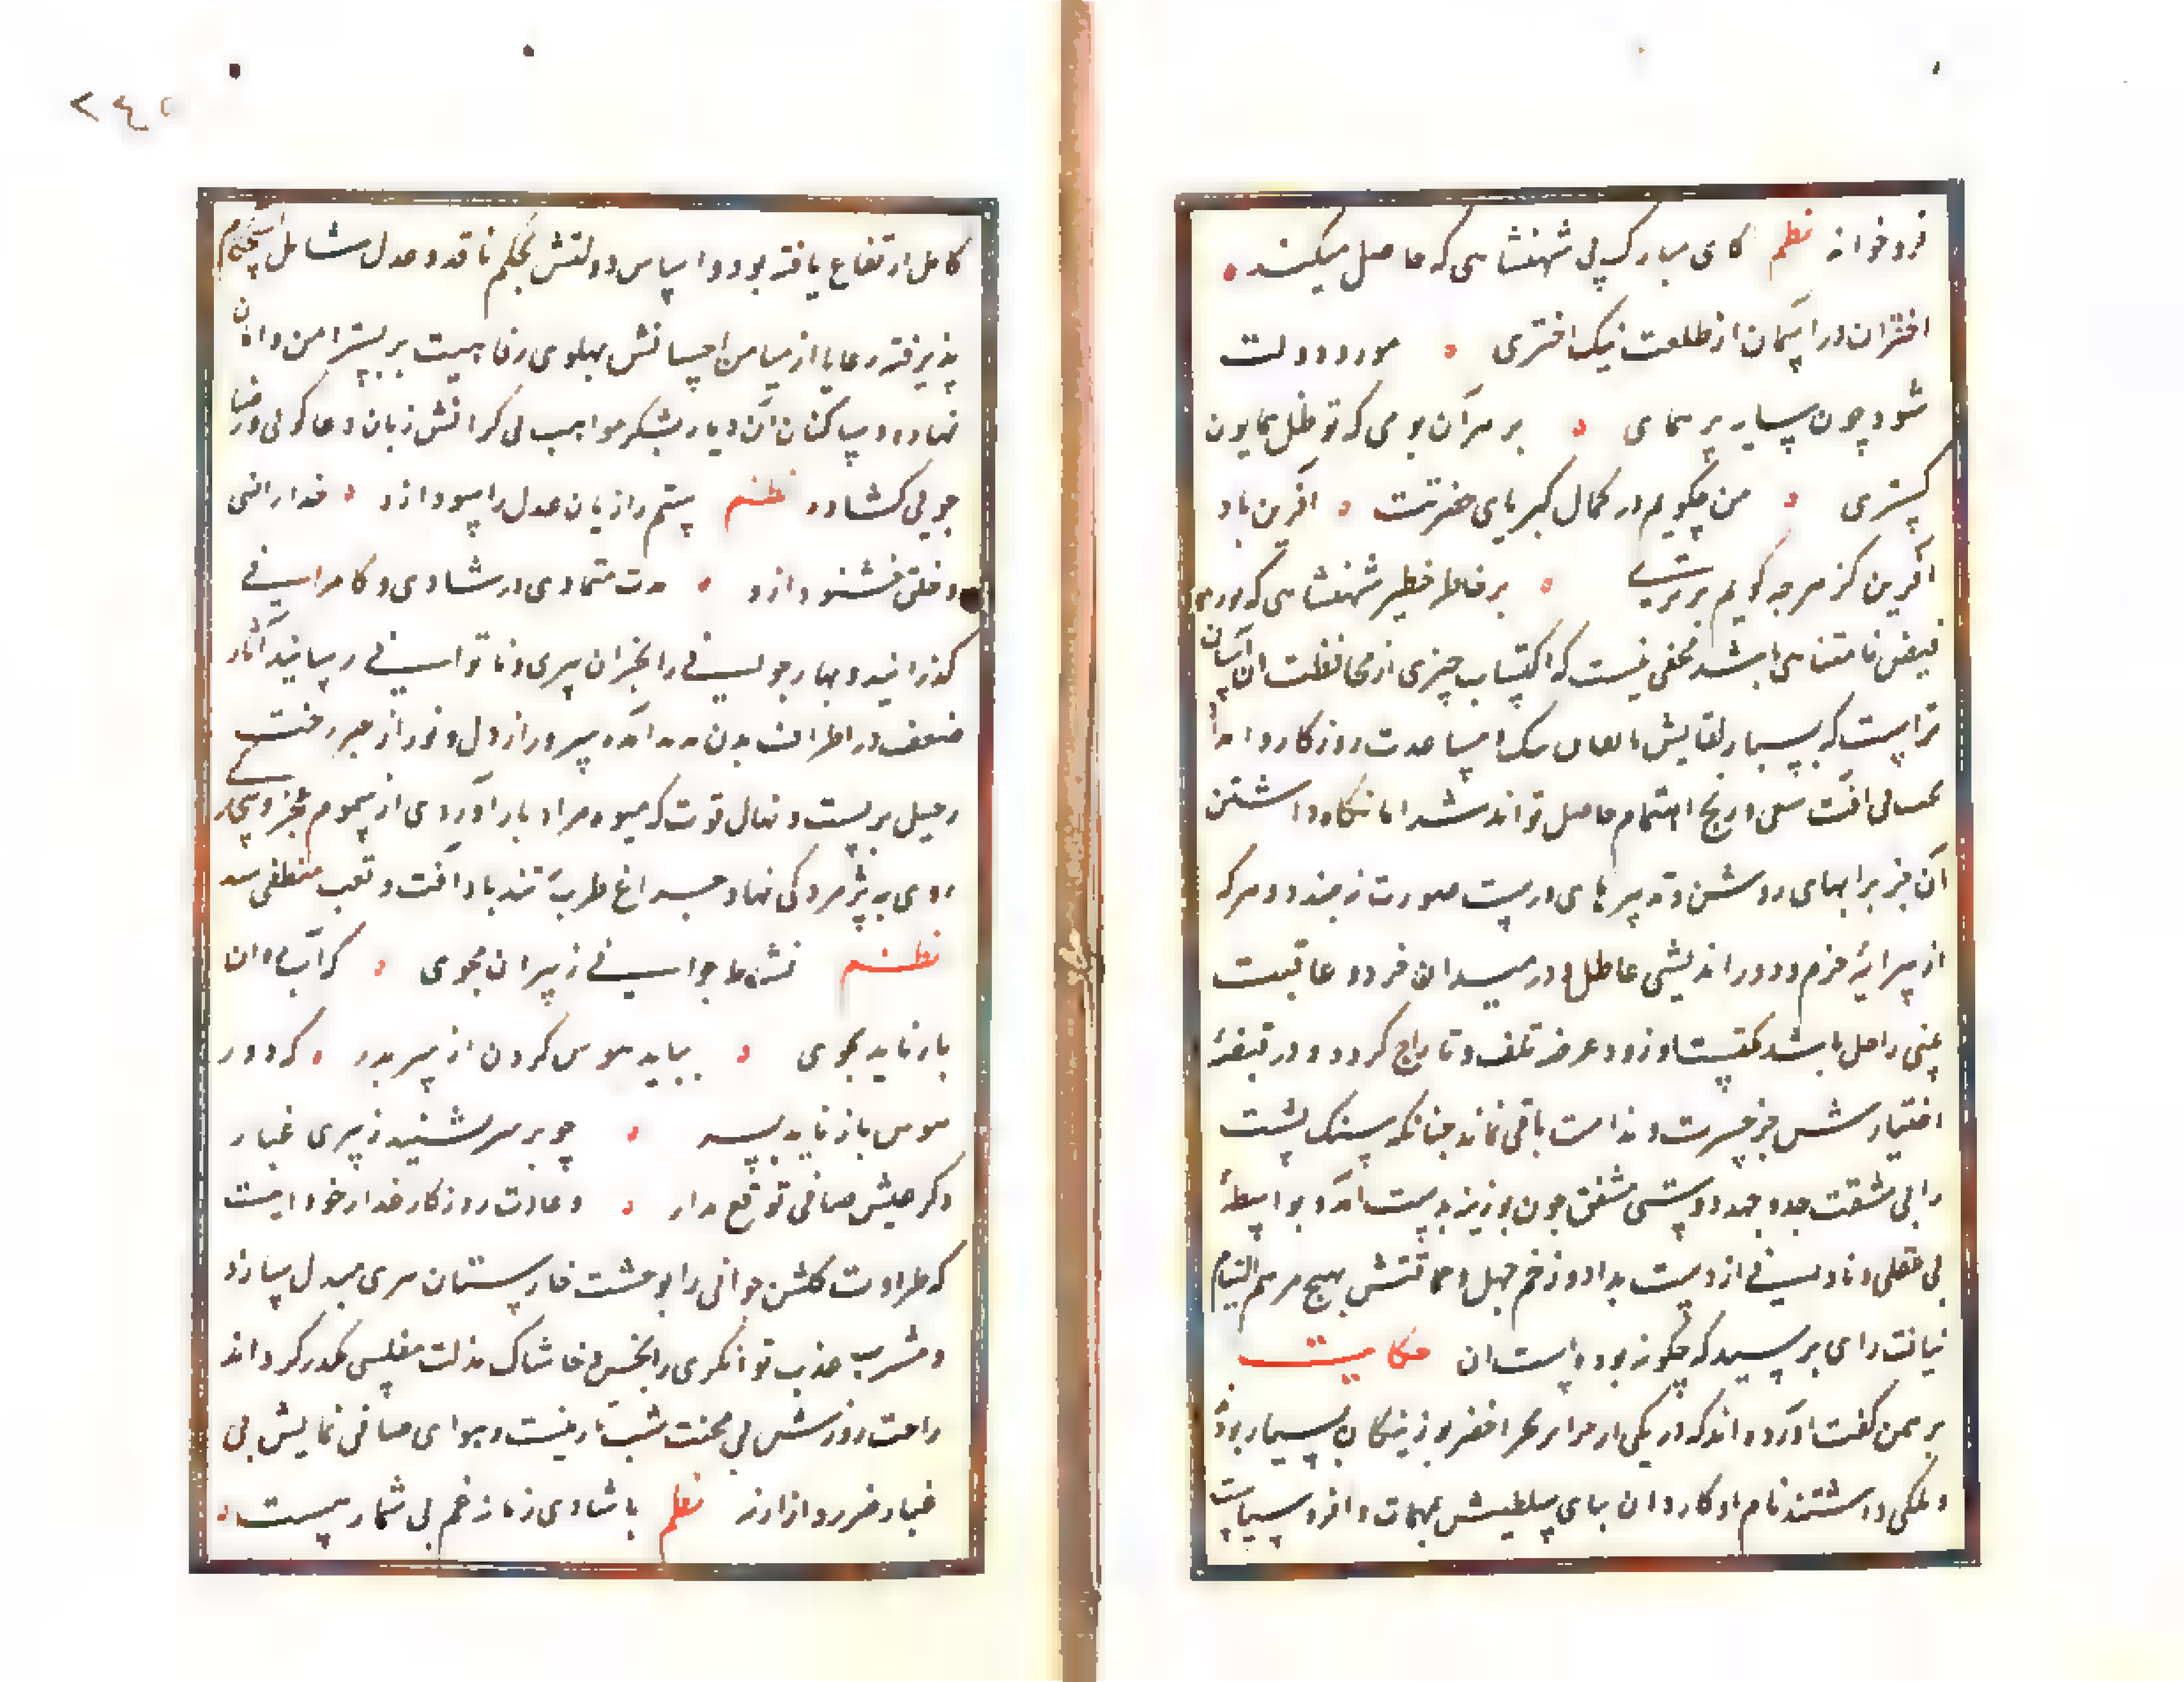 فرو خواند نظم کای مبارک پی شهنشاهی که حاصل میکنند
اختران در آسمان از طلعت نیک اختری مورد دولت
شود چون سایه پر همای بر هر آن بومی که تو ظل همایون
گستری من چگویم در کمال کبریای حضرتت آفرین باد
آفرین کز هرچه گویم برتری بر خاطر خطیر شهنشاهی که مورد
فیض نامتناهی باشد مخفی نیست که اکتساب چیزی از محافظت آن آسان
تر است که بسیار نفایس مساعدت روزگار و امداد
بی آفت سعی و رنج اهتمام حاصل تواند شد اما نگاه داشتن
آن جز برایهای روشن و تدبیرهای درست صورت نبندد و هرکه
از پیرایۀ حزم و دوراندیشی عاطل و در میدان خرد و عاقبت
بینی راجل باشد مکتسبات او زود عرضه تلف و تاراج گردد و در قبضۀ
اختیارش جز حسرت و ندامت باقی نماند چنانکه سنک پشت
را بی مشقت جد و جهد دوستی مشفق چون بوزینه بدست آمد و بواسطۀ
بی عقلی و نادانی از دست بداد و زخم جهل و حماقتش بهیچ مرهم التیام
نیافت رای پرسید که چگونه بود داستان حکایت
برهمن گفت آورده اند که در یکی از جزایر بحر اخضر بوزینگان بسیار بود
و ملکی داشتند نام او کاردان بنای سلطنتش بمهابت وافر و سیاست
کامل ارتفاع یافته بود و اساس دولتش بحکم نافذ و عدل شامل استحکام
پذیرفته رعایا از میامن احسانش پهلوی رفاهیت بر بستر امن و امان
نهاده و ساکنان آن دیار بشکر مواهب بی کرانش زبان دعا گوئی و رضا
جویی گشاده نظم ستم را زیان عدل را سود ازو خدا راضی
و خلق خشنود ازو مدت متمادی در شادی و کامرانی
گذرانید و بهار جوانی را بخزان پیری و ناتوانی رسانید آثار
ضعف در اطراف بدن پدید آمده سرور از دل و نور از بصر رخت
رحیل بربست و نهال قوت که میوه مراد بار آوردی از سموم عجز و بیچارگی
روی به پژمردگی نهاد و چراغ طرب تند باد آفت و تعب منطفی شد
نظم نشاط جوانی ز پیران مجوی که آب روان
باز ناید بجوی بباید هوس کردن از سر بدر که دور
هوس باز ناید بسر چو بر سر نشیند ز پیری غبار
دگر عیش صافی توقع مدار و عادت روزگار غدار خود اینست
که طراوت گلشن جوانی را بوحشت خارستان پیری مبدل سازد
و مشرب عذب توانگری را بخس و خاشاک مذلت مفلسی مکدر گرداند
راحت روزش بی محنت شب تار نیست و هوای صافی نمایش بی
غبار ضرر و آزار نه نظم با شادی زمانه غم بی شمار هست